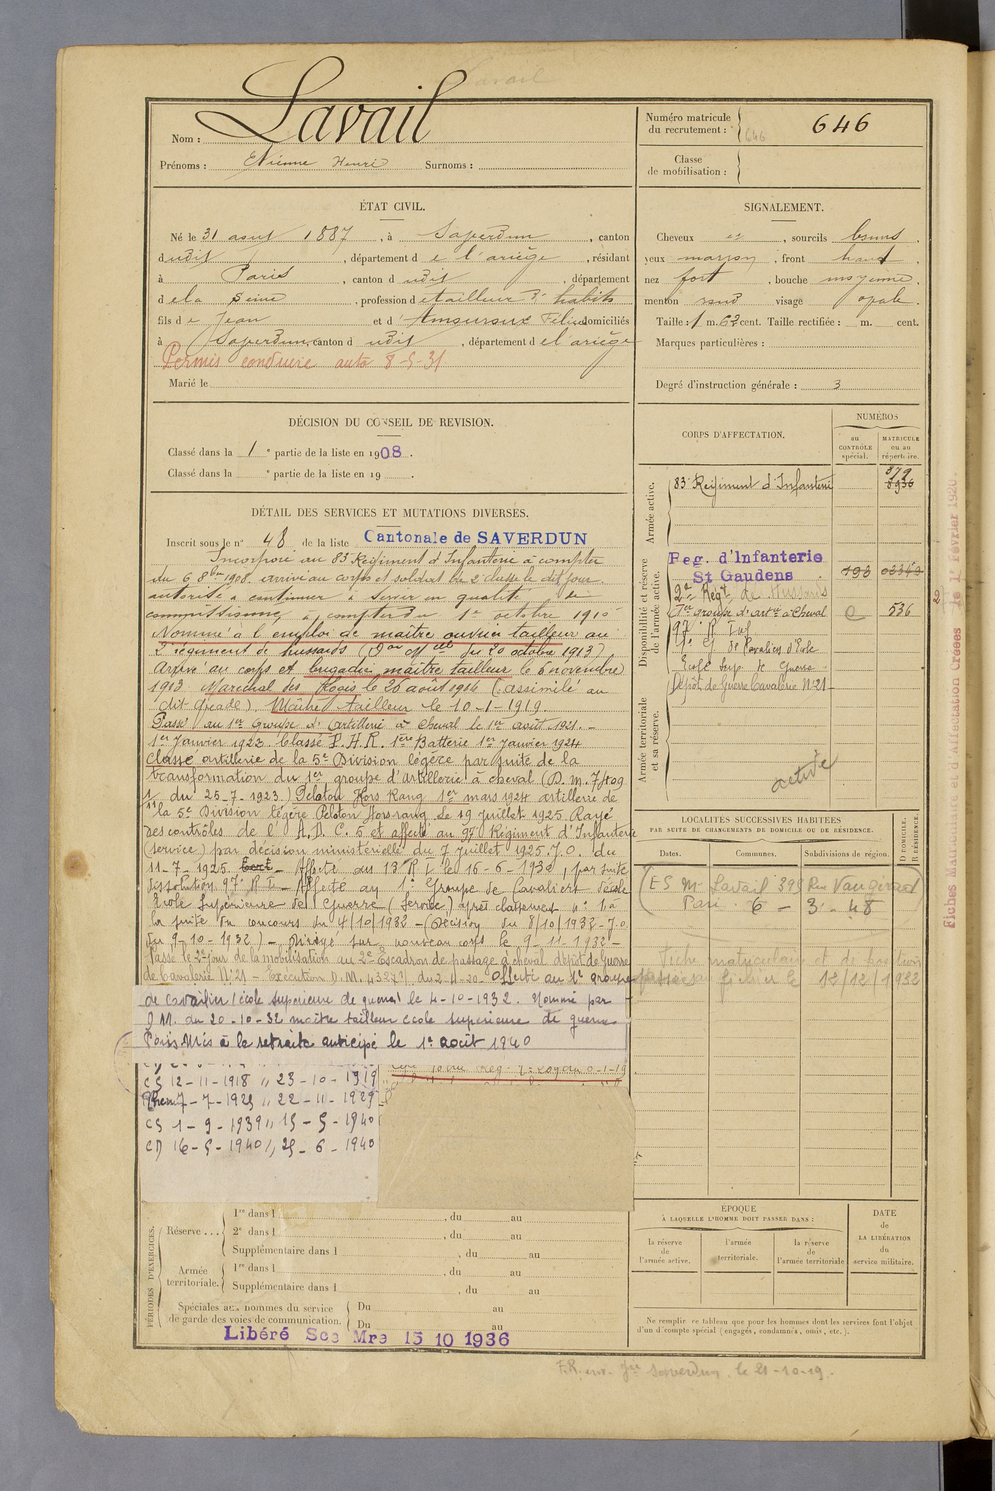 Lavail
Nom : Lavail
Prénoms : Etienne Henri Surnoms :
Numéro matricule
du recrutement : 646
646
Classe
de mobilisation :
ÉTAT CIVIL.
Né le 31 aout 1887, à Saverdun, canton
dudit, département de l'ariège, résidant
à Paris, canton dudit, département
dela Seine, profession de tailleur d'habits
fils de Jean et d'Amouroux Félicie domiciliés
à Saverdun canton dudit, département de l'ariège
Permis conduire auto 8-5-31
Marié le
SIGNALEMENT.
Cheveux et, sourcils bruns.
yeux marron, front haut
nez fort, bouche moyenne
menton rond visage ovale.
Taille : 1 m. 62 cent. Taille rectifiée : m. cent.
Marques particulières :
Degré d'instruction générale : 3
DÉCISION DU CONSEIL DE REVISION.
Classé dans la 1e partie de la liste en 1908.
Classé dans la e partie de la liste en 19 .
DÉTAIL DES SERVICES ET MUTATIONS DIVERSES.
Inscrit sous le n° 48 de la liste Cantonale de SAVERDUN
Incorporé au 83 Régiment d'Infanterie à compter
du 6 8bre 1908. arrivé au corps et soldat de 2e classe le dit jour.
autorisé à continuer à servir en qualité de
commissionné à compter du 1er octobre 1910
Nommé à l'emploi de maître ouvrier tailleur au
2e régiment de hussards (Don Mlle du 20 octobre 1913)
Arrivé au corps et brigadier maître tailleur le 6 novembre
1913. Maréchal des Logis le 26 août 1914 (assimilé au
dit grade) Maître tailleur le 10-1-1919.
Passé au 1er Groupe d'Artillerie à Cheval le 1er août 1921. -
1er Janvier 1923 Classé P.H.R. 1ère Batterie 1er Janvier 1924
Classé artillerie de la 5e Division légère par suite de la
transformation du 1er groupe d'artillerie à cheval (D.m. 7409
1/11 du 25-7-1923.) Peloton Hors Rang 1er mars 1924 artillerie de
la 5e Division légère Peloton Hors rang le 19 juillet 1925 Rayé
des contrôles de l'A.D.C. 5 et affecté au 97 Régiment d'Infanterie
(service) par décision ministérielle du 7 Juillet 1925 J.O. du
11-7-1925. Affecté au 13 R I le 16-6-1930, par suite
dissolution 97e R I - Affecté au 1er Groupe de Cavaliers d'école
Ecole Supérieure de Guerre (Service) après classement n° 1 à
la suite du concours du 4/10/1932 - (Décision du 8/10/1932 - J.O.
du 9-10-1932) - Dirigé sur nouveau corps le 9-11-1932 -
Passé le 2e jour de la mobilisation au 2e Escadron de passage à cheval dépôt de guerre
de Cavalerie N° 21 - Exécution D.M. du 2-4-20 - Affecté au 1er groupe
de cavaliers (école supérieure de guerre) le 4-10-1932. Nommé par
D M. du 20-10-32 maître tailleur école supérieure de guerre
Paris. Mis à la retraite anticipé le 1er août 1940
CS 12-11-1918 // 23-10-1919
7-7-1925 // 22-11-1925
CS 1-9-1939 // 15-5-1940
CD 16-5-1940 // 25-6-1940
CORPS D'AFFECTATION.
NUMÉROS
au
CONTRÔLE
spécial.
MATRICULE
ou au
répertoire.
Armée active.
83e Régiment d'Infanterie 879
8936
Disponibilité et réserve
de l'armée active.
Reg. d'Infanterie
St Gaudens
2e Régt de Hussards
1er groupe d'arte à Cheval 536
97e R. Inf
1er Gr de Cavaliers d'Ecole
Ecole Supre de Guerre
Dépôt de Guerre Cavalerie N° 21
Armée territoriale
et sa réserve.
active
LOCALITÉS SUCCESSIVES HABITÉES
PAR SUITE DE CHANGEMENTS DE DOMICILE OU DE RÉSIDENCE.
Dates.
Communes.
Subdivisions de région.
D DOMICILE.
R RÉSIDENCE.
E S Mr Lavail 393 Rue Vaugirard
Paris 6-3-48
Fiche matriculaire et de position
12/12/1932
ÉPOQUE
À LAQUELLE L'HOMME DOIT PASSER DANS :
la réserve
de
l'armée active.
l'armée
territoriale.
la réserve
de
l'armée territoriale
DATE
de
LA LIBÉRATION
du
service militaire.
Ne remplir ce tableau que pour les hommes dont les services font l'objet
d'un décompte spécial (engagés, condamnés, omis, etc.).
PÉRIODES D'EXERCICES.
Réserve ...
1re dans l , du au
2e dans l , du au
Supplémentaire dans l , du au
Armée
territoriale.
1re dans l , du au
Supplémentaire dans l , du au
Spéciales aux hommes du service
de garde des voies de communication.
Du au
Du au
Libéré Sce Mre 15 10 1936
Saverdun. le 21-10-19.
Fiches Matricule et d'affectation Créées le 1er Février 1920.